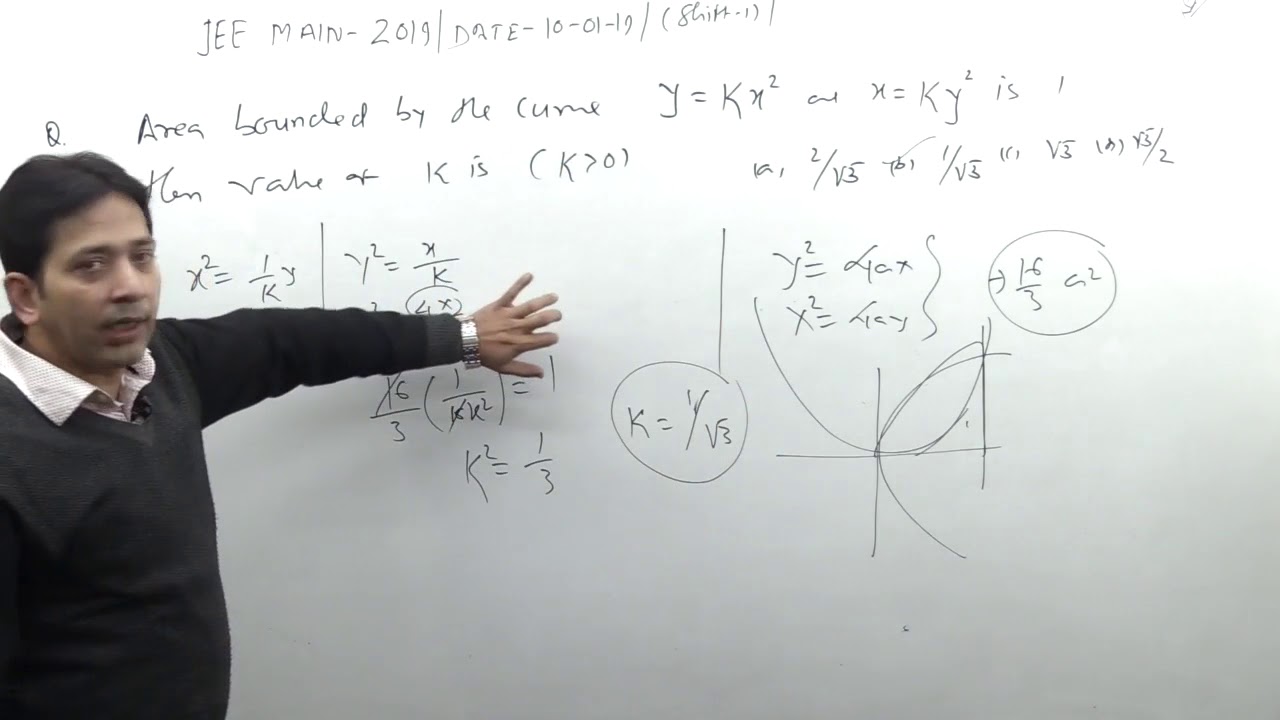 JEE MAIN- 2019 | DATE- 10-01-19 / (Shift-1) |
Q. Area bounded by the curve y = Kx² and x = Ky² is 1
then value of K is (K>0)
(a) 2/√3 (b) 1/√3 (c) √3 (d) √3/2
x² = 1/K y
y² = x/K
16/3 (1/16K²) = 1
K² = 1/3
K = 1/√3
y² = 4ax
x² = 4ay
→ 16/3 a²